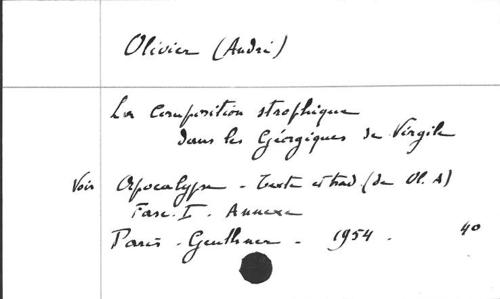 Olivier (André)
La Composition strophique
dans les Géorgiques de Virgile
Voir Apocalypse - Texte et trad. (de Ol. A)
Fasc. I. Annexe
Paris - Geuthner - 1954. 40